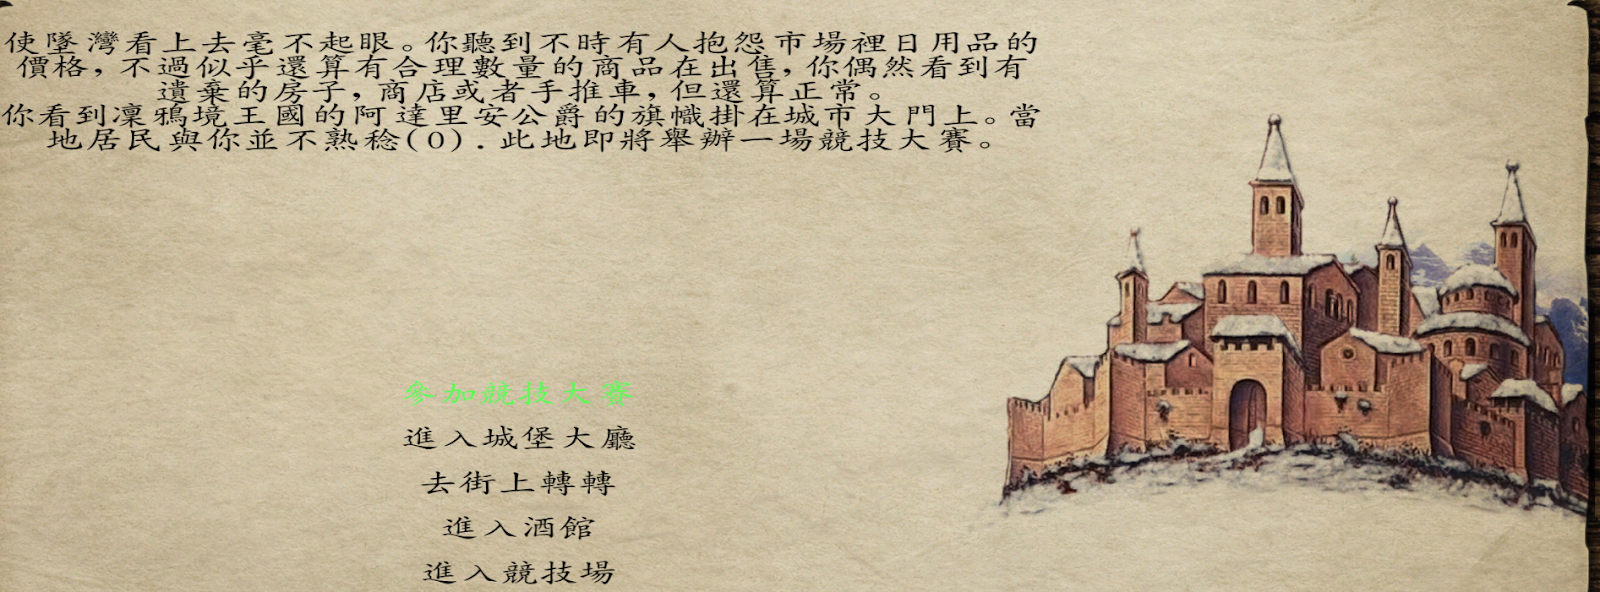 使墜灣看上去毫不起眼。你聽到不時有人抱怨市場裡日用品的
價格，不過似乎還算有合理數量的商品在出售，你偶然看到有
遺棄的房子，商店或者手推車，但還算正常。
你看到凜鴉境王國的阿達里安公爵的旗幟掛在城市大門上。當
地居民與你並不熟稔(0).此地即將舉辦一場競技大賽。
參加競技大賽
進入城堡大廳
去街上轉轉
進入酒館
進入競技場